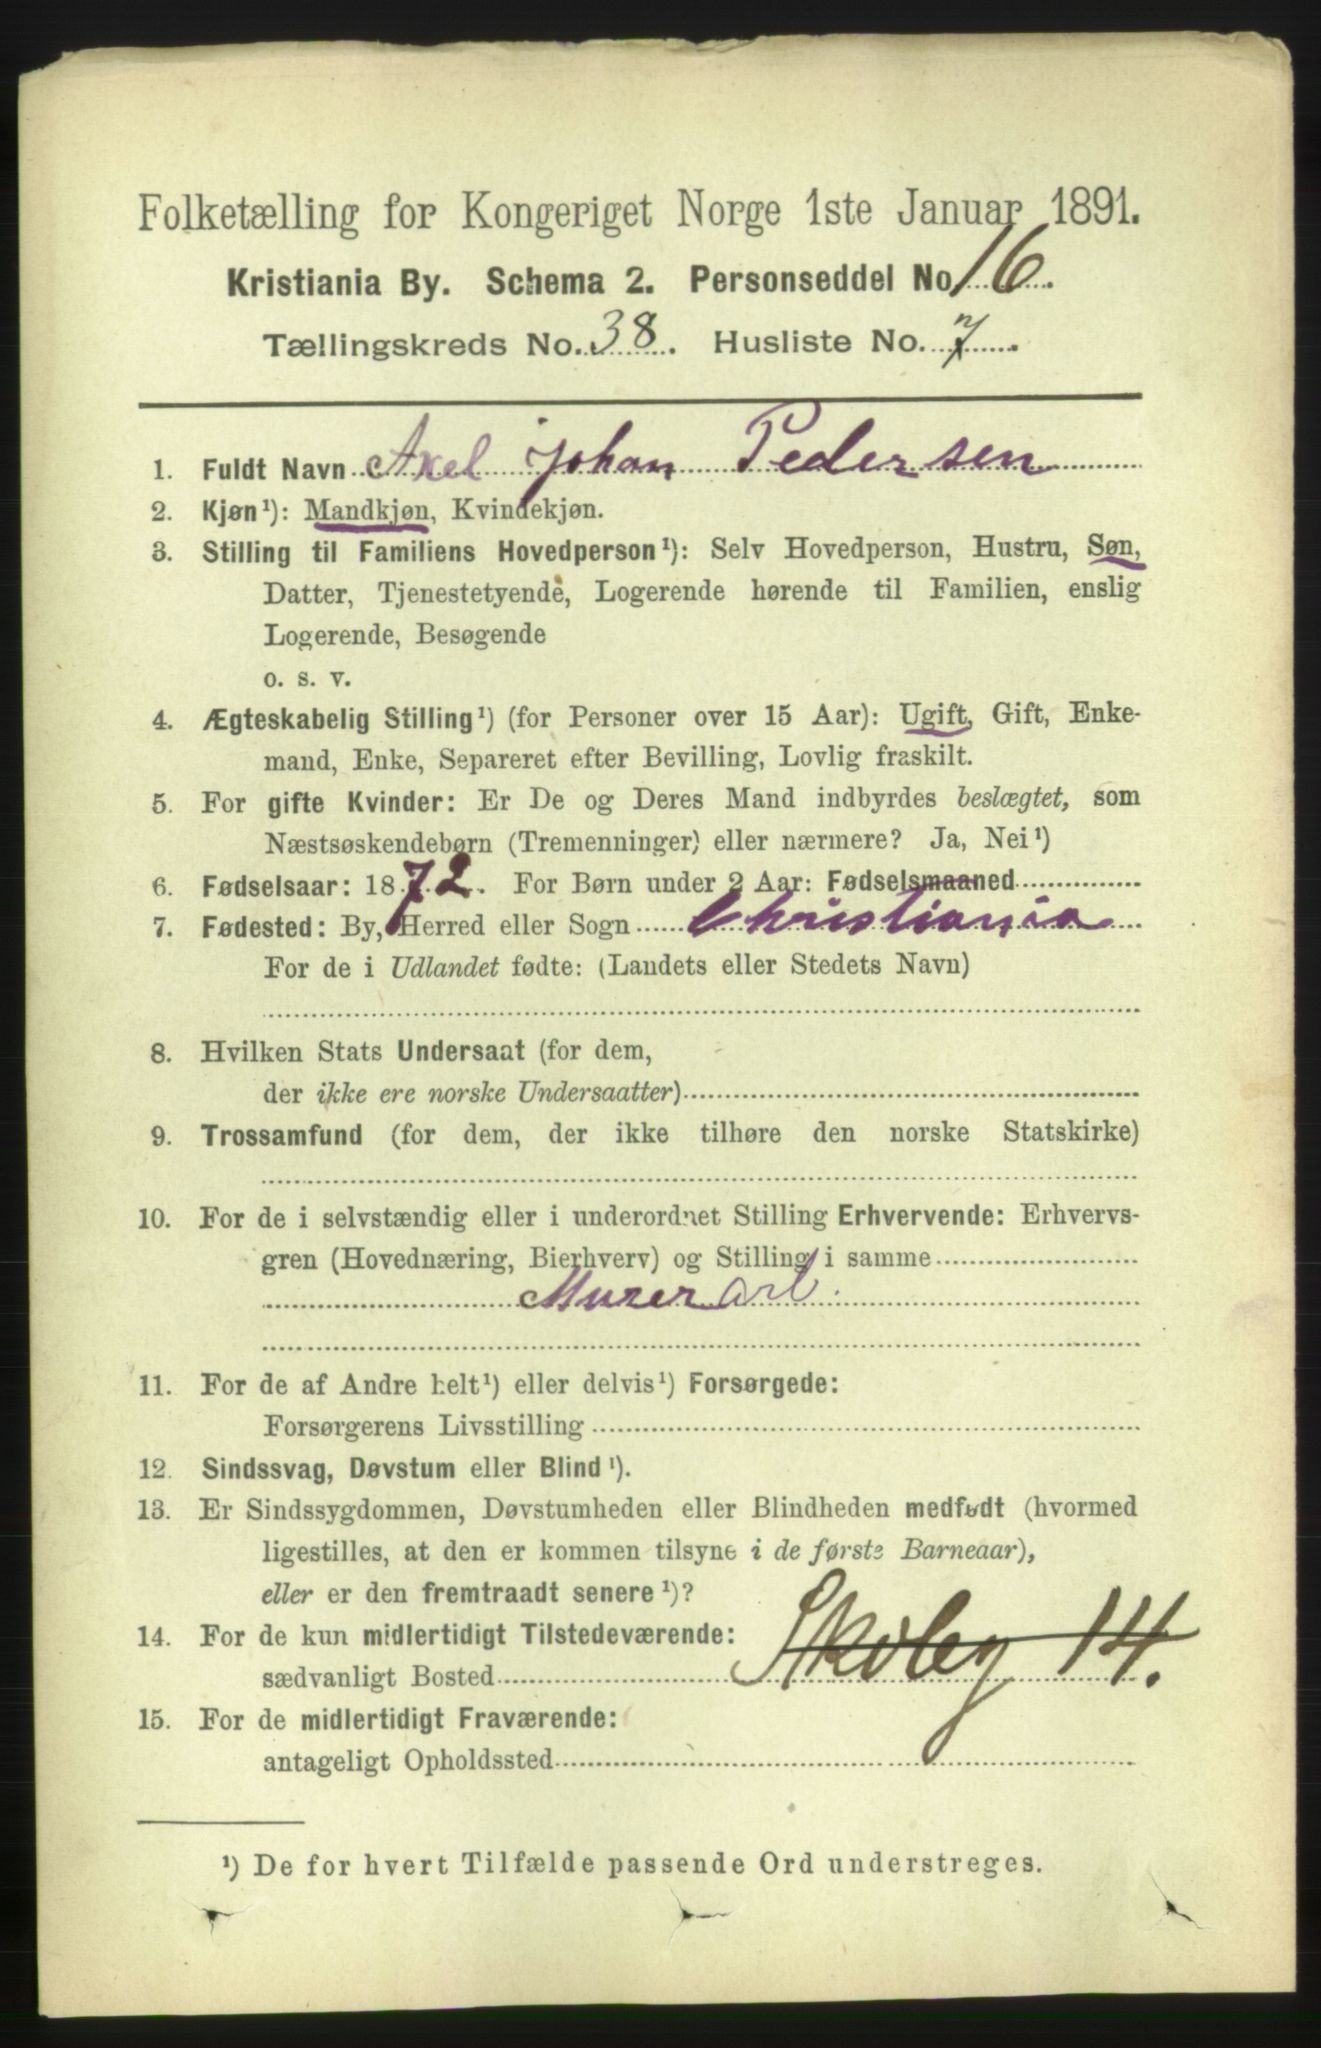 Folketælling for Kongeriget Norge 1ste Januar 1891.
Kristiania By. Schema 2. Personseddel No. 16.
Tællingskreds No. 38. Husliste No. 7.
1. Fuldt Navn Axel Johan Pedersen
2. Kjøn¹): Mandkjøn, Kvindekjøn.
3. Stilling til Familiens Hovedperson¹): Selv Hovedperson, Hustru, Søn,
Datter, Tjenestetyende, Logerende hørende til Familien, enslig
Logerende, Besøgende
o. s. v.
4. Ægteskabelig Stilling¹) (for Personer over 15 Aar): Ugift, Gift, Enke-
mand, Enke, Separeret efter Bevilling, Lovlig fraskilt.
5. For gifte Kvinder: Er De og Deres Mand indbyrdes beslægtet, som
Næstsøskendebørn (Tremenninger) eller nærmere? Ja, Nei¹)
6. Fødselsaar: 1872. For Børn under 2 Aar: Fødselsmaaned
7. Fødested: By, Herred eller Sogn Christiania
For de i Udlandet fødte: (Landets eller Stedets Navn)
8. Hvilken Stats Undersaat (for dem,
der ikke ere norske Undersaatter)
9. Trossamfund (for dem, der ikke tilhøre den norske Statskirke)
10. For de i selvstændig eller i underordnet Stilling Erhvervende: Erhvervs-
gren (Hovednæring, Bierhverv) og Stilling i samme
Murer arb.
11. For de af Andre helt¹) eller delvis¹) Forsørgede:
Forsørgerens Livsstilling
12. Sindssvag, Døvstum eller Blind¹).
13. Er Sindssygdommen, Døvstumheden eller Blindheden medfødt (hvormed
ligestilles, at den er kommen tilsyne i de første Barneaar),
eller er den fremtraadt senere¹)?
14. For de kun midlertidigt Tilstedeværende:
sædvanligt Bosted Skoleg 14.
15. For de midlertidigt Fraværende:
antageligt Opholdssted
¹) De for hvert Tilfælde passende Ord understreges.